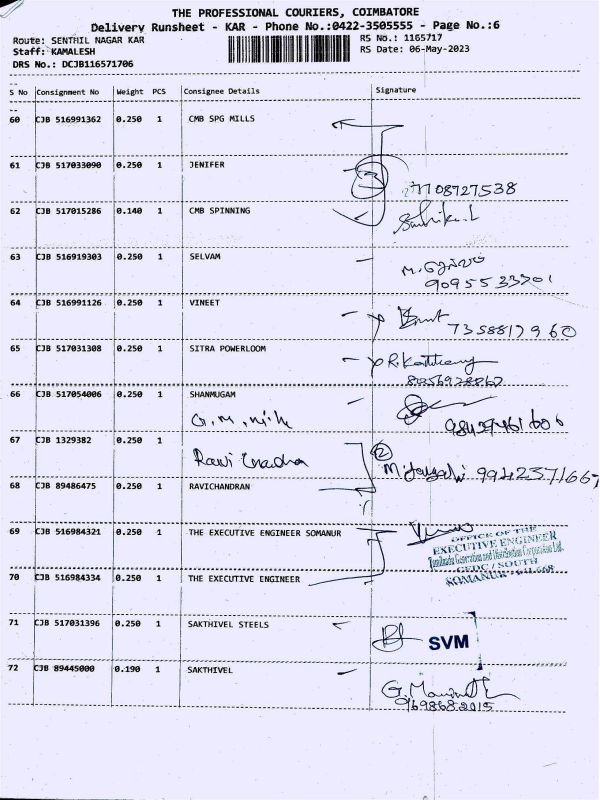 THE PROFESSIONAL COURIERS, COIMBATORE
Delivery Runsheet - KAR - Phone No.:0422-3505555 - Page No.:6
Route: SENTHIL NAGAR KAR
RS No.: 1165717
Staff: KAMALESH
RS Date: 06-May-2023
DRS No.: DCJB116571706
S No Consignment No Weight PCS Consignee Details Signature
60 CJB 516991362 0.250 1 CMB SPG MILLS
61 CJB 517033090 0.250 1 JENIFER
3
7708727538
62 CJB 517015286 0.140 1 CMB SPINNING
63 CJB 516919303 0.250 1 SELVAM
9095533301
64 CJB 516991126 0.250 1 VINEET
7358817960
65 CJB 517031308 0.250 1 SITRA POWERLOOM
66 CJB 517054006 0.250 1 SHANMUGAM
G.M.
67 CJB 1329382 0.250 1
2
9942371667
68 CJB 89486475 0.250 1 RAVICHANDRAN
69 CJB 516984321 0.250 1 THE EXECUTIVE ENGINEER SOMANUR
OFFICE OF THE
EXECUTIVE ENGINEER
Tamilnadu Generation and Distribution Corporation Ltd.
CEDC / SOUTH
SOMANUR - 641 668
70 CJB 516984334 0.250 1 THE EXECUTIVE ENGINEER
71 CJB 517031396 0.250 1 SAKTHIVEL STEELS
SVM
72 CJB 89445000 0.190 1 SAKTHIVEL
9698682015